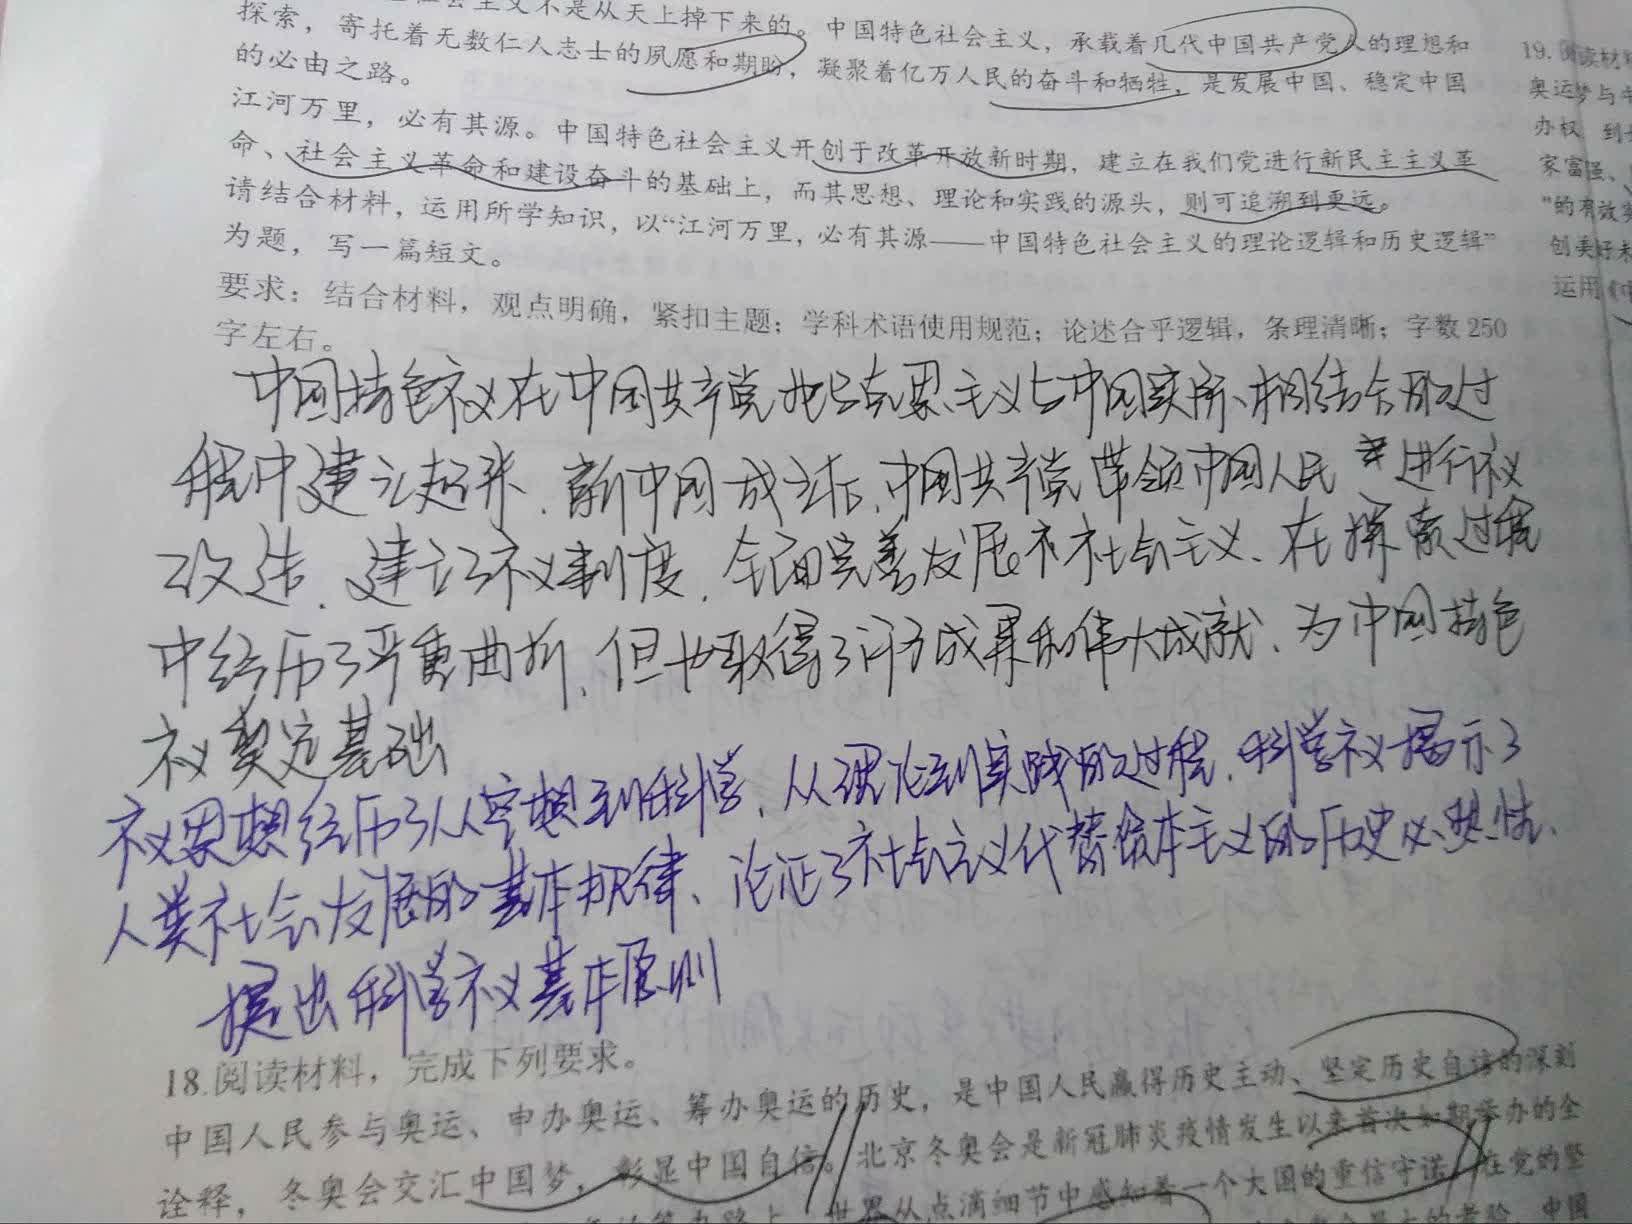 社会主义不是从天上掉下来的。中国特色社会主义，承载着几代中国共产党人的理想和
探索，寄托着无数仁人志士的夙愿和期盼，凝聚着亿万人民的奋斗和牺牲，是发展中国、稳定中国
的必由之路。
江河万里，必有其源。中国特色社会主义开创于改革开放新时期，建立在我们党进行新民主主义革
命、社会主义革命和建设奋斗的基础上，而其思想、理论和实践的源头，则可追溯到更远。
请结合材料，运用所学知识，以“江河万里，必有其源——中国特色社会主义的理论逻辑和历史逻辑”
为题，写一篇短文。
要求：结合材料，观点明确，紧扣主题；学科术语使用规范；论述合乎逻辑，条理清晰；字数250
字左右。
中国特色社义在中国共产党把马克思主义与中国实际相结合的过
程中建立起来，新中国成立后，中国共产党带领中国人民进行社义
改造，建立了社义制度，全面完善发展社会主义、在探索过程
中经历了严重曲折，但也取得了成果和伟大成就、为中国特色
社义奠定基础
社义思想经历了从空想到科学，从理论到实践的过程，科学社义揭示了
人类社会发展的基本规律、论证了社会主义代替资本主义的历史必然性、
提出科学社义基本原则
18.阅读材料，完成下列要求。
中国人民参与奥运、申办奥运、筹办奥运的历史，是中国人民赢得历史主动、坚定历史自信的深刻
诠释，冬奥会交汇中国梦，彰显中国自信。北京冬奥会是新冠肺炎疫情发生以来首次如期举办的全
世界从点滴细节中感知着一个大国的重信守诺。在党的坚
19.阅读材料
奥运梦与中
办权
家富强、
创美好未
运用